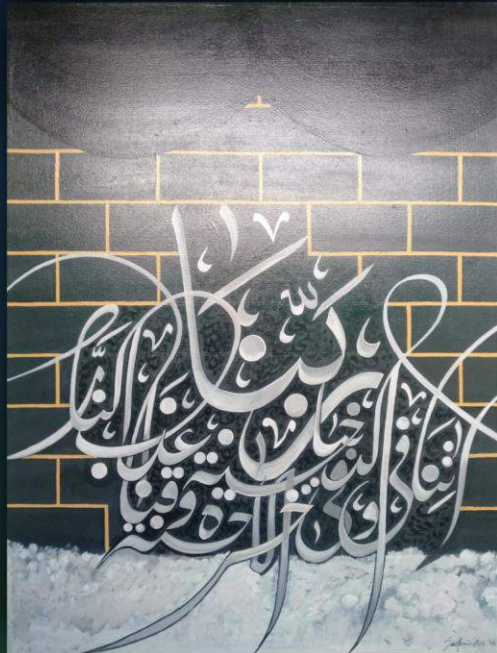 ربنا
اتنا في الدنيا
حسنة وفي الآخرة
حسنة وقنا
عذاب النار